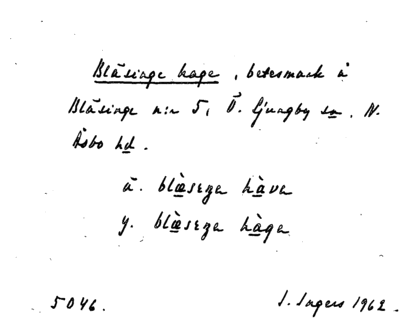 Bläsinge hage, betesmark å
Bläsinge n:r 5, Ö. Ljungby sn. N.
Åsbo hd.
ä. blæ̀sɪŋa hàva
y. blæ̀sɪŋa hàga
5046. I. Ingers 1962.